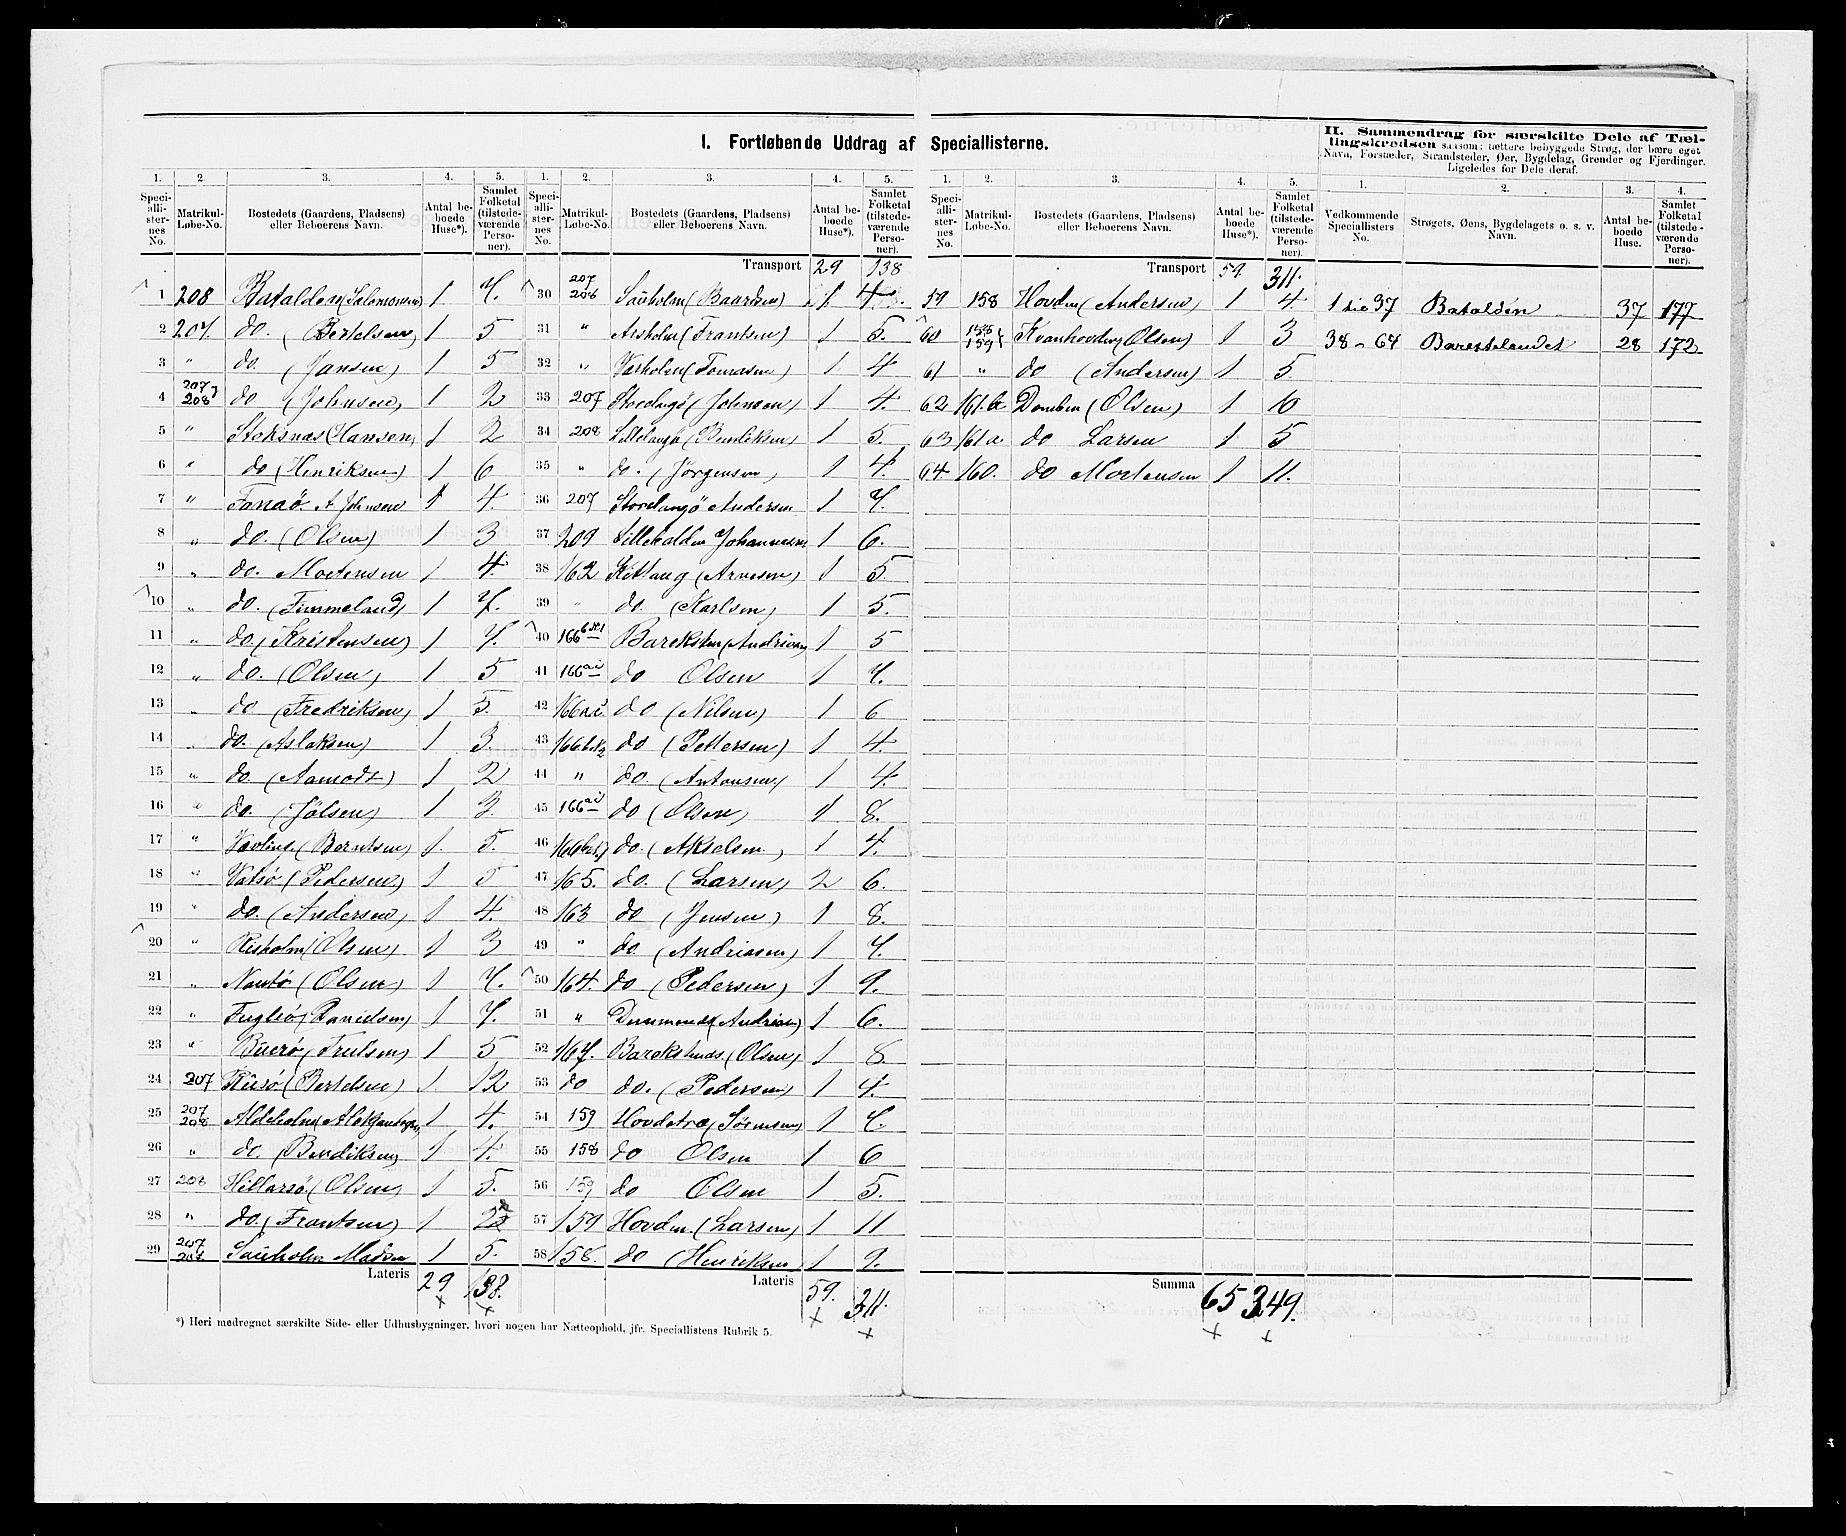 I. Fortløbende Uddrag af Speciallisterne.
II. Sammendrag for særskilte Dele af Tællingskredsen saasom: tættere bebyggede Strøg, der bære eget Navn, Forstæder, Strandsteder, Øer, Bygdelag, Grender og Fjerdinger. Ligeledes for Dele deraf.
1. 2. 3. 4. 5.
Speciallisternes No. Matrikul-Løbe-No. Bostedets (Gaardens, Pladsens) eller Beboerens Navn. Antal beboede Huse*). Samlet Folketal (tilstedeværende Personer).
1 208 Bataldøn (Salomonsen) 1 7.
2 207. do. (Bertelsen) 1 5
3 " do. (Jansen) 1 5
4 207 208 do (Johnsen) 1 2
5 " Steksnæs (Hansen) 1 2
6 " do (Henriksen) 1 6
7 " Fanøø. A Johnsen 1 4.
8 " do. (Olsen) 1 3
9 " do. Mortensen 1 4.
10 " do. (Timmeland) 1 7.
11 " do (Kristensen) 1 7.
12 " do. (Olsen) 1 5
13 " do (Fredriksen) 1 5.
14 " do. (Aslaksen) 1 3.
15 " do. (Aamodt) 1 2
16 " do. (Jølsen) 1 3.
17 " (Berntsen) 1. 5.
18 " Vatsø (Pedersen) 1 5
19 " do. (Andersen) 1 4.
20 " Risholm (Olsen) 1 3
21 " (Olsen) 1 7.
22 " Fuglsø (Davidsen) 1 7.
23 " Buerø (Trulsen) 1 5
24 207 (Bertelsen) 1. 12
25 207 208 Aldeholm 1 4.
26 " do. (Bendiksen) 1 4.
27 208 Hillarsø (Olsen) 1 5.
28 " do. (Frantsen) 1 2
29 207 208 Sauholm Madsen 1 5.
Lateris 29 138.
1. 2. 3. 4. 5.
Speciallisternes No. Matrikul-Løbe-No. Bostedets (Gaardens, Pladsens) eller Beboerens Navn. Antal beboede Huse*). Samlet Folketal (tilstedeværende Personer).
Transport 29 138
30 207 208 Sauholm (Baardsen) 1 4
31 " Arsholm (Frantsen) 1 5.
32 " Værholm (Tomasen) 1 4
33 207 Storelangø (Johnsen) 1 4.
34 208 Lillelangø (Bendiksen) 1 5.
35 " do. (Jørgensen) 1 4.
36 207 Storelangø Andersen 1 7.
37 209 Lillebalden Johannesen 1 6.
38 162 Kittang (Arnesen) 1 5
39 do. (Karlsen) 1 5.
40 166 Bareksten (Andriasen) 1 5
41 166 do Olsen 1 7.
42 166 do (Nilsen) 1 6
43 166 do (Pettersen) 1 4.
44 " do. (Antonsen) 1 4.
45 166 do (Olsen) 1 8.
46 166 do. (Akselsen) 1 4.
47 165. do. (Larsen) 2 6.
48 163 do (Jensen) 1 8.
49 " do. (Andriasen) 1 7.
50 164. do (Pedersen) 1 9.
51 " (Andriasen) 1 6.
52 167. Bareksnæs. (Olsen) 1 8
53 do do. (Pedersen) 1 4.
54 159 Hovdetræ (Sørensen) 1 7.
55 158 do Olsen 1 6
56 159 do Olsen 1 5.
57 159 Hovden (Larsen) 1 11
58 158. do (Henriksen) 1 9.
Lateris 59. 311.
*) Heri medregnet særskilte Side- eller Udhusbygninger, hvori nogen har Natteophold, jfr. Speciallistens Rubrik 5.
1. 2. 3. 4. 5.
Speciallisternes No. Matrikul-Løbe-No. Bostedets (Gaardens, Pladsens) eller Beboerens Navn. Antal beboede Huse*). Samlet Folketal (tilstedeværende Personer).
Transport 59 311.
59 158 Hovden (Andersen) 1 4
60 159 Kvanhovden (Olsen) 1 3
61 " do (Andersen) 1 5
62 161.b Domben (Olsen) 1 10
63 161a. do Larsen 1 5
64. 160. do Mortensen 1 11.
Summa 65 349.
1. 2. 3. 4.
Vedkommende Speciallisters No. Strøgets, Øens, Bygdelagets o. s. v. Navn. Antal beboede Huse. Samlet Folketal (tilstedeværende Personer).
1 til 37 Bataldøn 37 177
38 - 64 Barestelandet 28 172